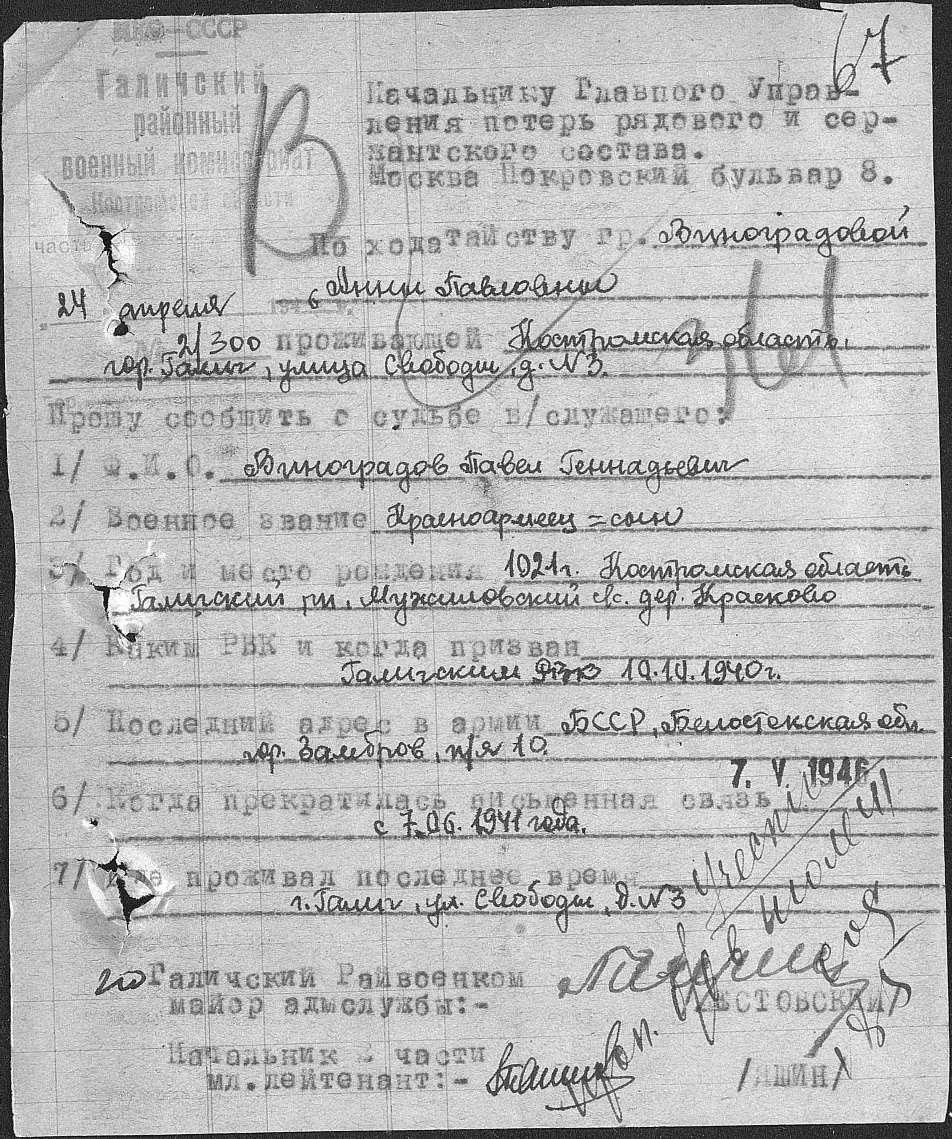 НКО-СССР
Галичский
районный
военный комиссариат
Костромской области
часть
24 апреля 194 6 г.
2/300
67
В
Начальнику Главного Управ-
ления потерь рядового и сер-
жантского состава.
Москва Покровский бульвар 8.
По ходатайству гр. Виноградовой
Анны Павловны
проживающей Костромская область,
гор. Галич, улица Свободы, д. №3.
Прошу сообщить о судьбе в/служащего:
1/ Ф.И.О. Виноградов Павел Геннадьевич
2/ Военное звание Красноармеец = сын
3/ Год и место рождения 1921г. Костромская область
Галичский рн, Мужиловский с/с. дер. Красково
4/ Каким РВК и когда призван
Галичским РВК 10.10.1940г.
5/ Последний адрес в армии БССР, Белостокская обл.
гор. Замбров, п/я 10.
7. V. 1946
6/ Когда прекратилась письменная связь
с 7.06.1941 года.
7/ Где проживал последнее время
г. Галич, ул. Свободы, д. №3
Галичский Райвоенком
майор адмслужбы:- /ШЕСТОВСКИЙ/
Начальник 2 части
мл. лейтенант:- /ЯШИН/